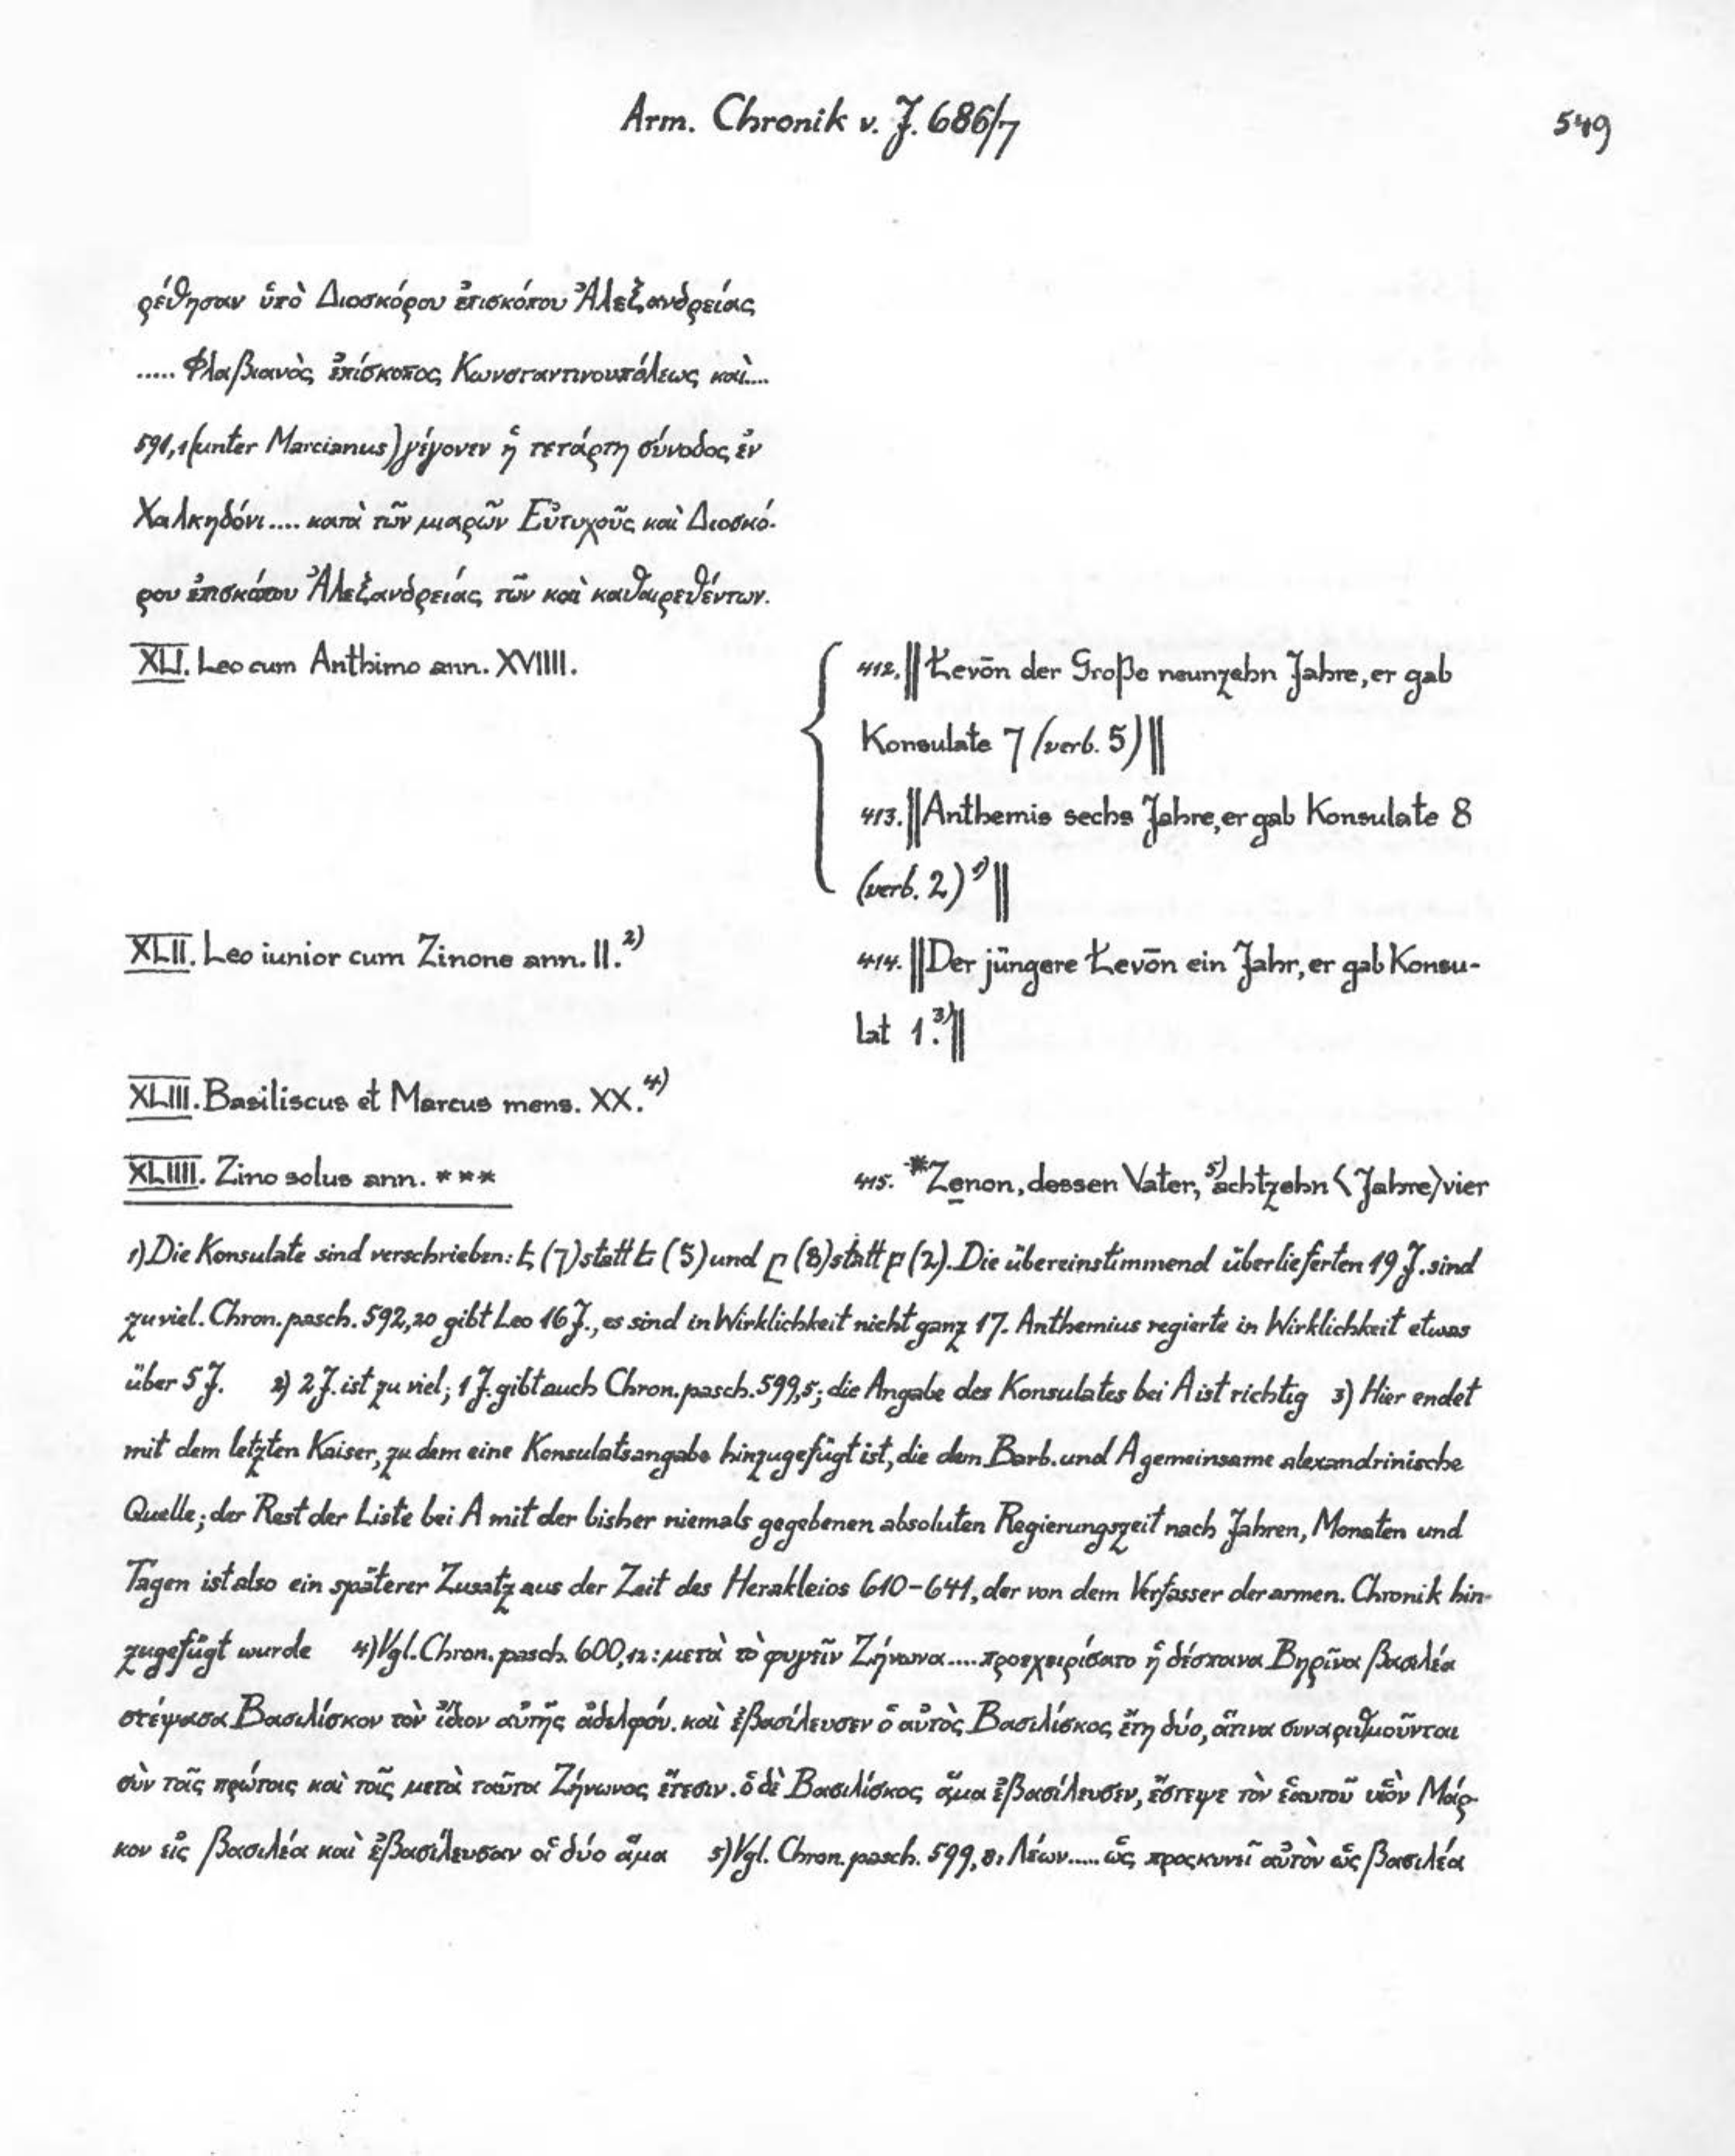 Arm. Chronik v. J. 686/7
549
ρέθησαν ὑπὸ Διοσκόρου ἐπισκόπου Ἀλεξανδρείας
..... Φλαβιανὸς ἐπίσκοπος Κωνσταντινουπόλεως καὶ....
591,1 (unter Marcianus) γέγονεν ἡ τετάρτη σύνοδος ἐν
Χαλκηδόνι.... κατὰ τῶν μιαρῶν Εὐτυχοῦς καὶ Διοσκό-
ρου ἐπισκόπου Ἀλεξανδρείας τῶν καὶ καθαιρεθέντων.
XLI. Leo cum Anthimo ann. XVIIII.
412. || Łevōn der Große neunzehn Jahre, er gab
Konsulate 7 (verb. 5) ||
413. || Anthemis sechs Jahre, er gab Konsulate 8
(verb. 2) 1) ||
XLII. Leo iunior cum Zinone ann. II. 2)
414. || Der jüngere Łevōn ein Jahr, er gab Konsu-
lat 1. 3) ||
XLIII. Basiliscus et Marcus mens. XX. 4)
XLIIII. Zino solus ann. ***
415. *Zenon, dessen Vater, 5) achtzehn <Jahre> vier
1) Die Konsulate sind verschrieben: է (7) statt ե (5) und ը (8) statt բ (2). Die übereinstimmend überlieferten 19 J. sind
zu viel. Chron. pasch. 592,20 gibt Leo 16 J., es sind in Wirklichkeit nicht ganz 17. Anthemius regierte in Wirklichkeit etwas
über 5 J. 2) 2 J. ist zu viel; 1 J. gibt auch Chron. pasch. 599,5; die Angabe des Konsulates bei A ist richtig 3) Hier endet
mit dem letzten Kaiser, zu dem eine Konsulatsangabe hinzugefügt ist, die dem Barb. und A gemeinsame alexandrinische
Quelle; der Rest der Liste bei A mit der bisher niemals gegebenen absoluten Regierungszeit nach Jahren, Monaten und
Tagen ist also ein späterer Zusatz aus der Zeit des Herakleios 610-641, der von dem Verfasser der armen. Chronik hin-
zugefügt wurde 4) Vgl. Chron. pasch. 600,12: μετὰ τὸ φυγεῖν Ζήνωνα.... προεχειρίσατο ἡ δέσποινα Βηρῖνα βασιλέα
στέψασα Βασιλίσκον τὸν ἴδιον αὐτῆς ἀδελφόν. καὶ ἐβασίλευσεν ὁ αὐτὸς Βασιλίσκος ἔτη δύο, ἅτινα συναριθμοῦνται
σὺν τοῖς πρώτοις καὶ τοῖς μετὰ ταῦτα Ζήνωνος ἔτεσιν. ὁ δὲ Βασιλίσκος ἅμα ἐβασίλευσεν, ἔστεψε τὸν ἑαυτοῦ υἱὸν Μάρ-
κον εἰς βασιλέα καὶ ἐβασίλευσαν οἱ δύο ἅμα 5) Vgl. Chron. pasch. 599,8: Λέων..... ὡς προσκυνεῖ αὐτὸν ὡς βασιλέα